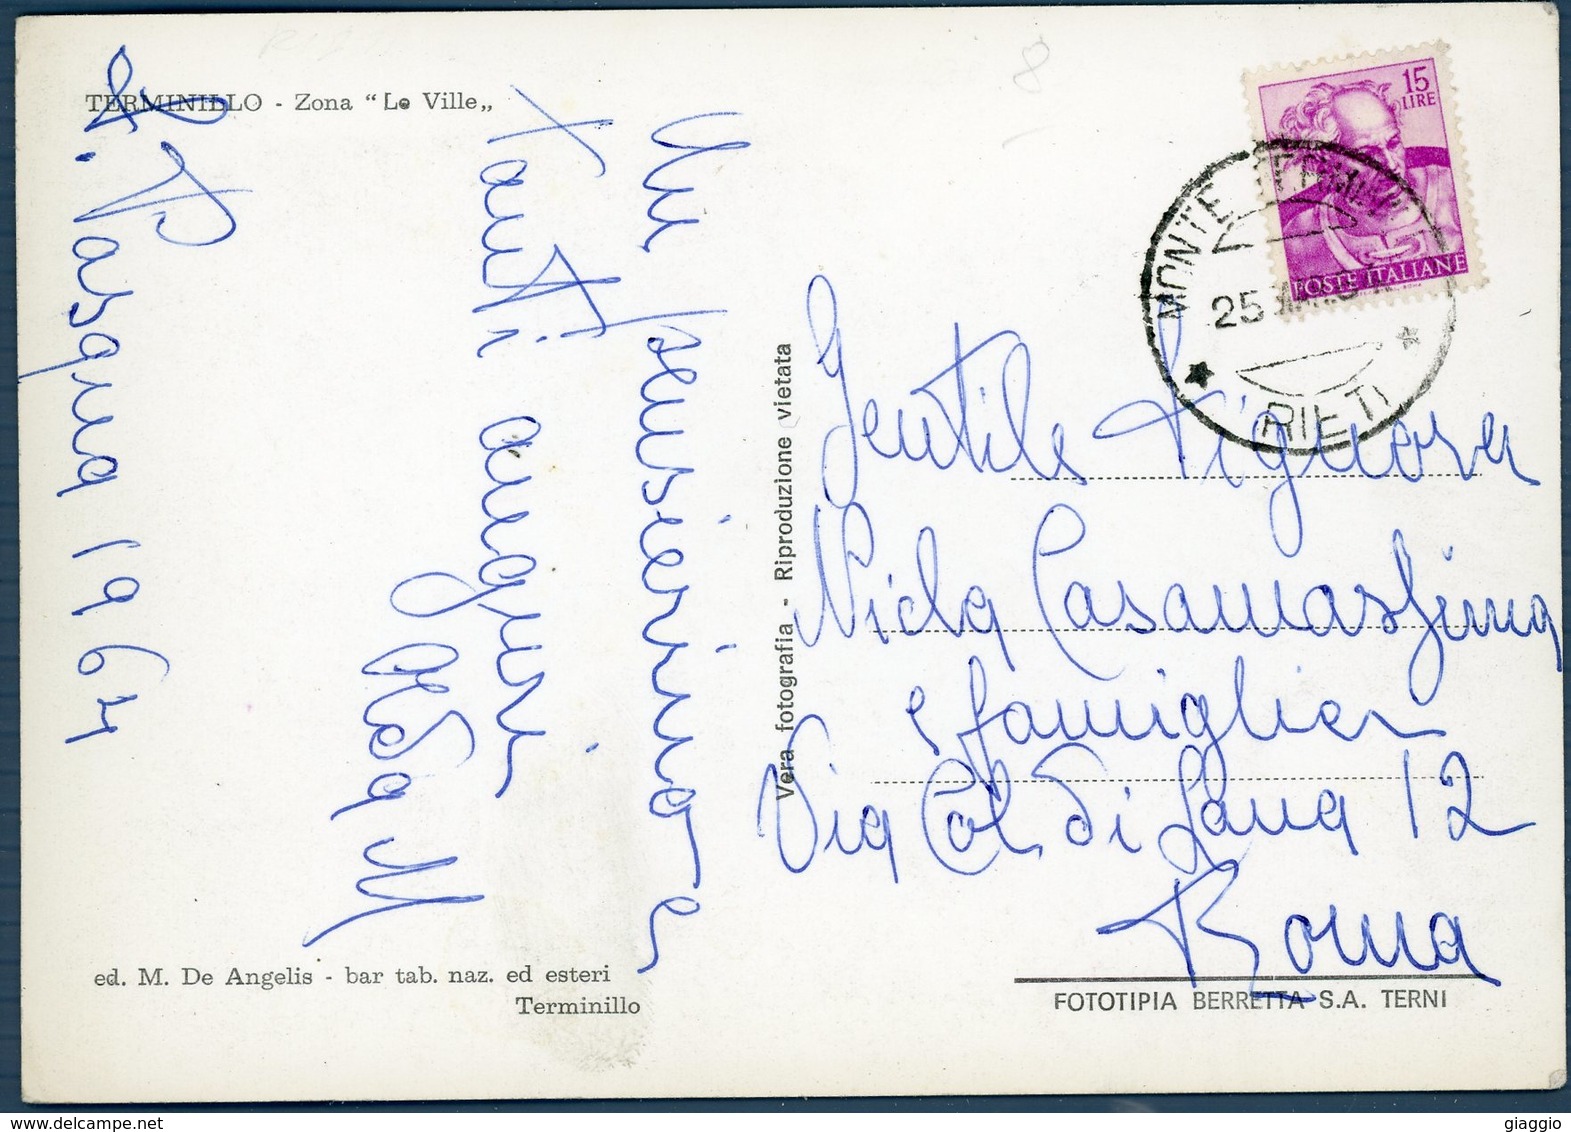 TERMINILLO - Zona “Le Ville„
Un pensierino e
tanti auguri
Alda M
S. Pasqua 1964
ed. M. De Angelis - bar tab. naz. ed esteri
Terminillo
Vera fotografia - Riproduzione vietata
15
LIRE
POSTE ITALIANE
MONTE TERMINILLO
25
RIETI
Gentile Signora
Nida Casamassima
e famiglia
Via Col di Lana 12
Roma
FOTOTIPIA BERRETTA S.A. TERNI
giaggio